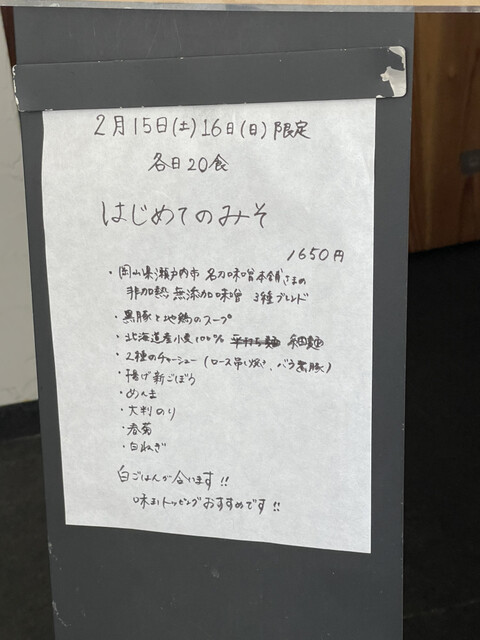 2月15日(土)16日(日)限定
各日20食
はじめてのみそ
1650円
・岡山県瀬戸内市 名刀味噌本舗さまの
非加熱 無添加味噌 3種ブレンド
・黒豚と地鶏のスープ
・北海道産小麦100% 平打ち麺 細麺
・2種のチャーシュー(ロース吊し焼き、バラ黒豚)
・揚げ新ごぼう
・めんま
・大判のり
・春菊
・白ねぎ
白ごはんが合います!!
味玉トッピングおすすめです!!